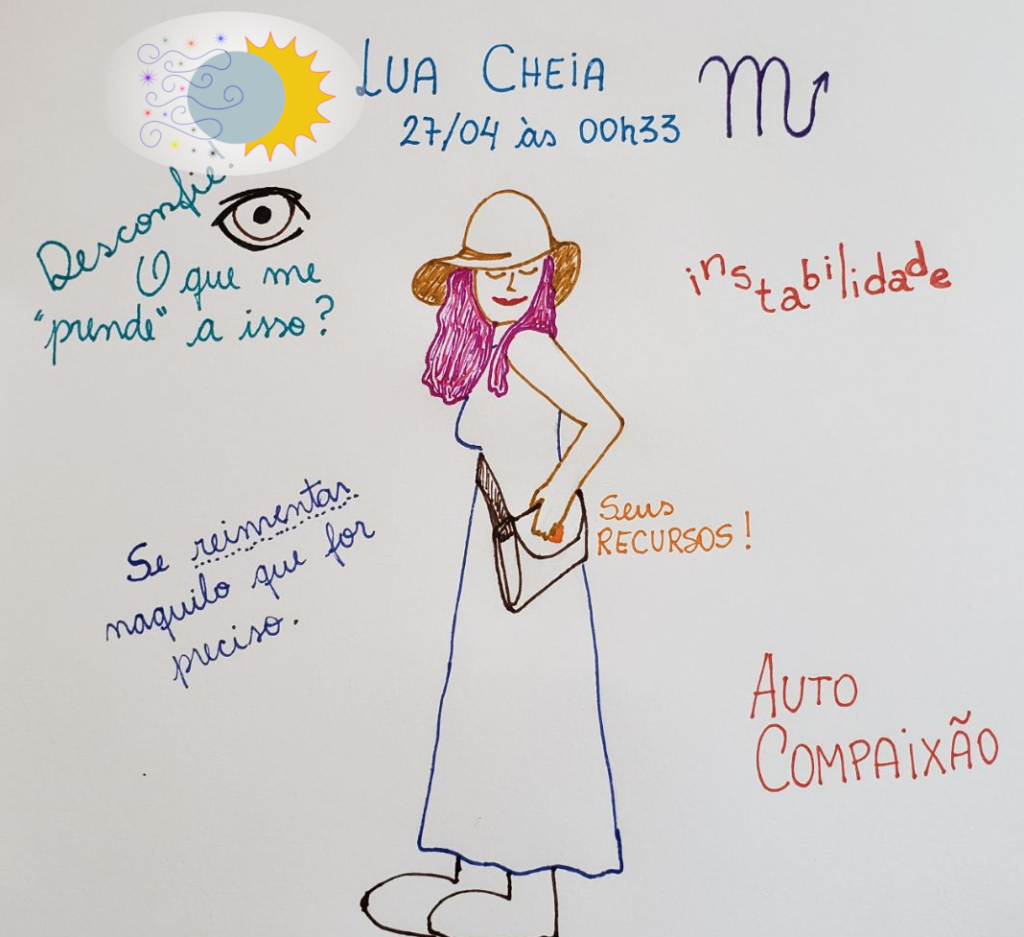 Lua Cheia
27/04 às 00h33
Desconfie!
O que me
"prende" a isso?
instabilidade
Seus
RECURSOS!
Se reimentar
naquilo que for
preciso.
AUTO
COMPAIXÃO